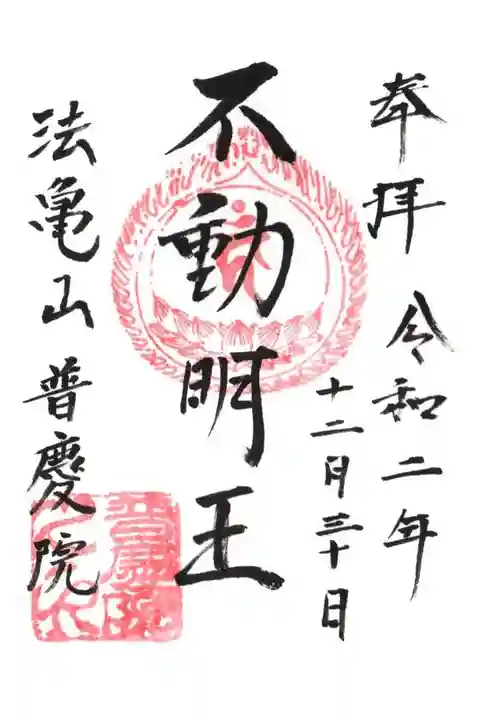 奉拝 令和二年
十二月三十日
不動明王
法亀山 普慶院